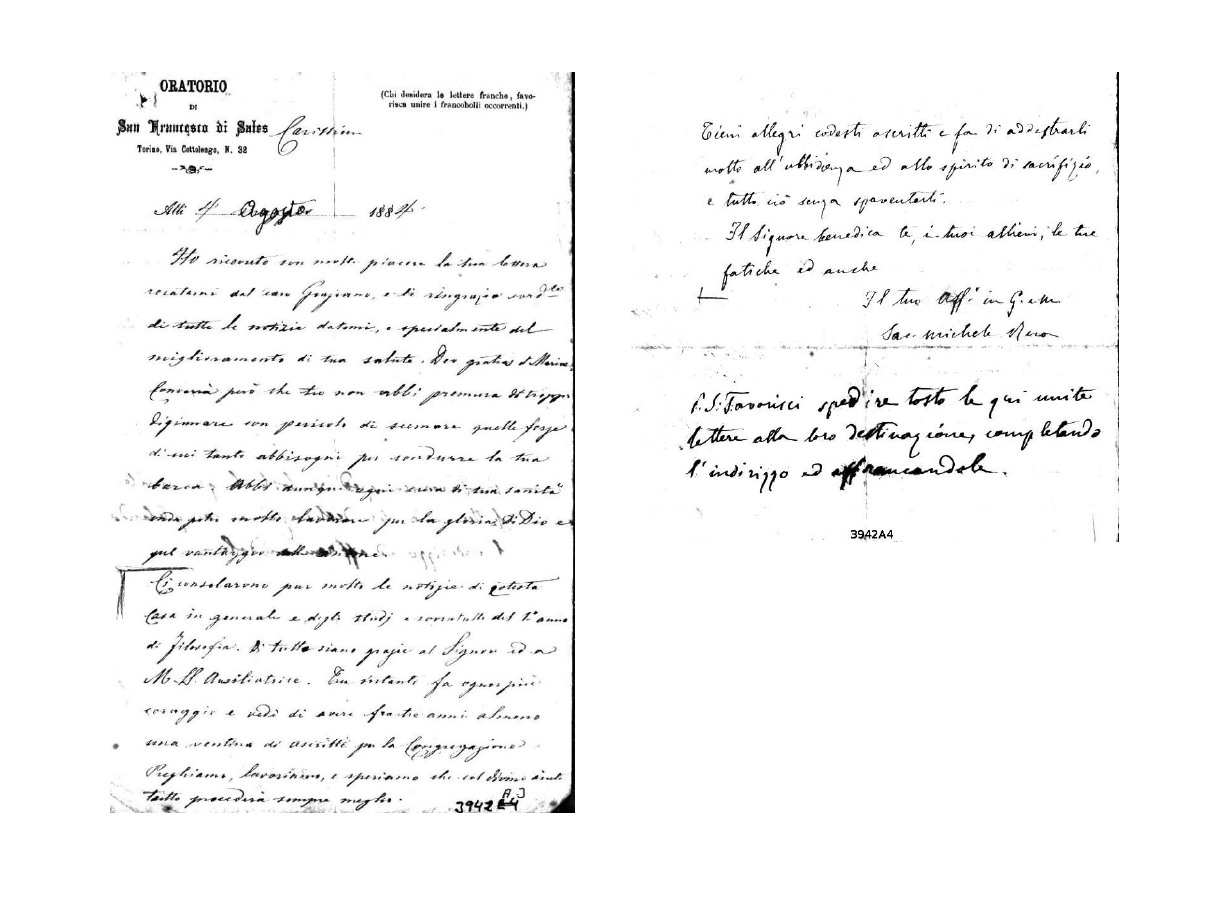 ORATORIO
DI
San Francesco di Sales
Torino, Via Cottolengo, N. 32
(Chi desidera le lettere franche, favo-
risca unire i francobolli occorrenti.)
Carissimo
Alli 4 Agosto 1884
Ho ricevuto con molto piacere la tua lettera
recatami dal caro Graziano, e ti ringrazio cord.te
di tutte le notizie datemi, e specialmente del
miglioramento di tua salute. Deo gratias et Mariae.
Converrà però che tu non abbi premura di troppo
digiunare con pericolo di scemare quelle forze
di cui tanto abbisogni per condurre la tua
barca. Abbi dunque ogni cura di tua sanità
onde poter molto lavorare per la gloria di Dio e
pel vantaggio delle anime.
Ci consolarono pur molto le notizie di cotesta
Casa in generale e degli studj e sovratutto del 1° anno
di filosofia. Di tutto siano grazie al Signore ed a
M. SS. Ausiliatrice. Tu intanto fa ognor più
coraggio e vedi di avere fra tre anni almeno
una ventina di ascritti per la Congregazione.
Preghiamo, lavoriamo, e speriamo che col divino aiuto
tutto procederà sempre meglio.
3942 A3
E4
Tieni allegri codesti ascritti e fa di addestrarli
molto all'ubbidienza ed allo spirito di sacrifizio,
e tutto ciò senza spaventarli.
Il Signore benedica te, i tuoi allievi, le tue
fatiche ed anche
Il tuo Aff. in G. e M.
Sac. Michele Rua
P.S. Favorisci spedire tosto le qui unite
lettere alla loro destinazione, completando
l'indirizzo ed affrancandole.
3942A4